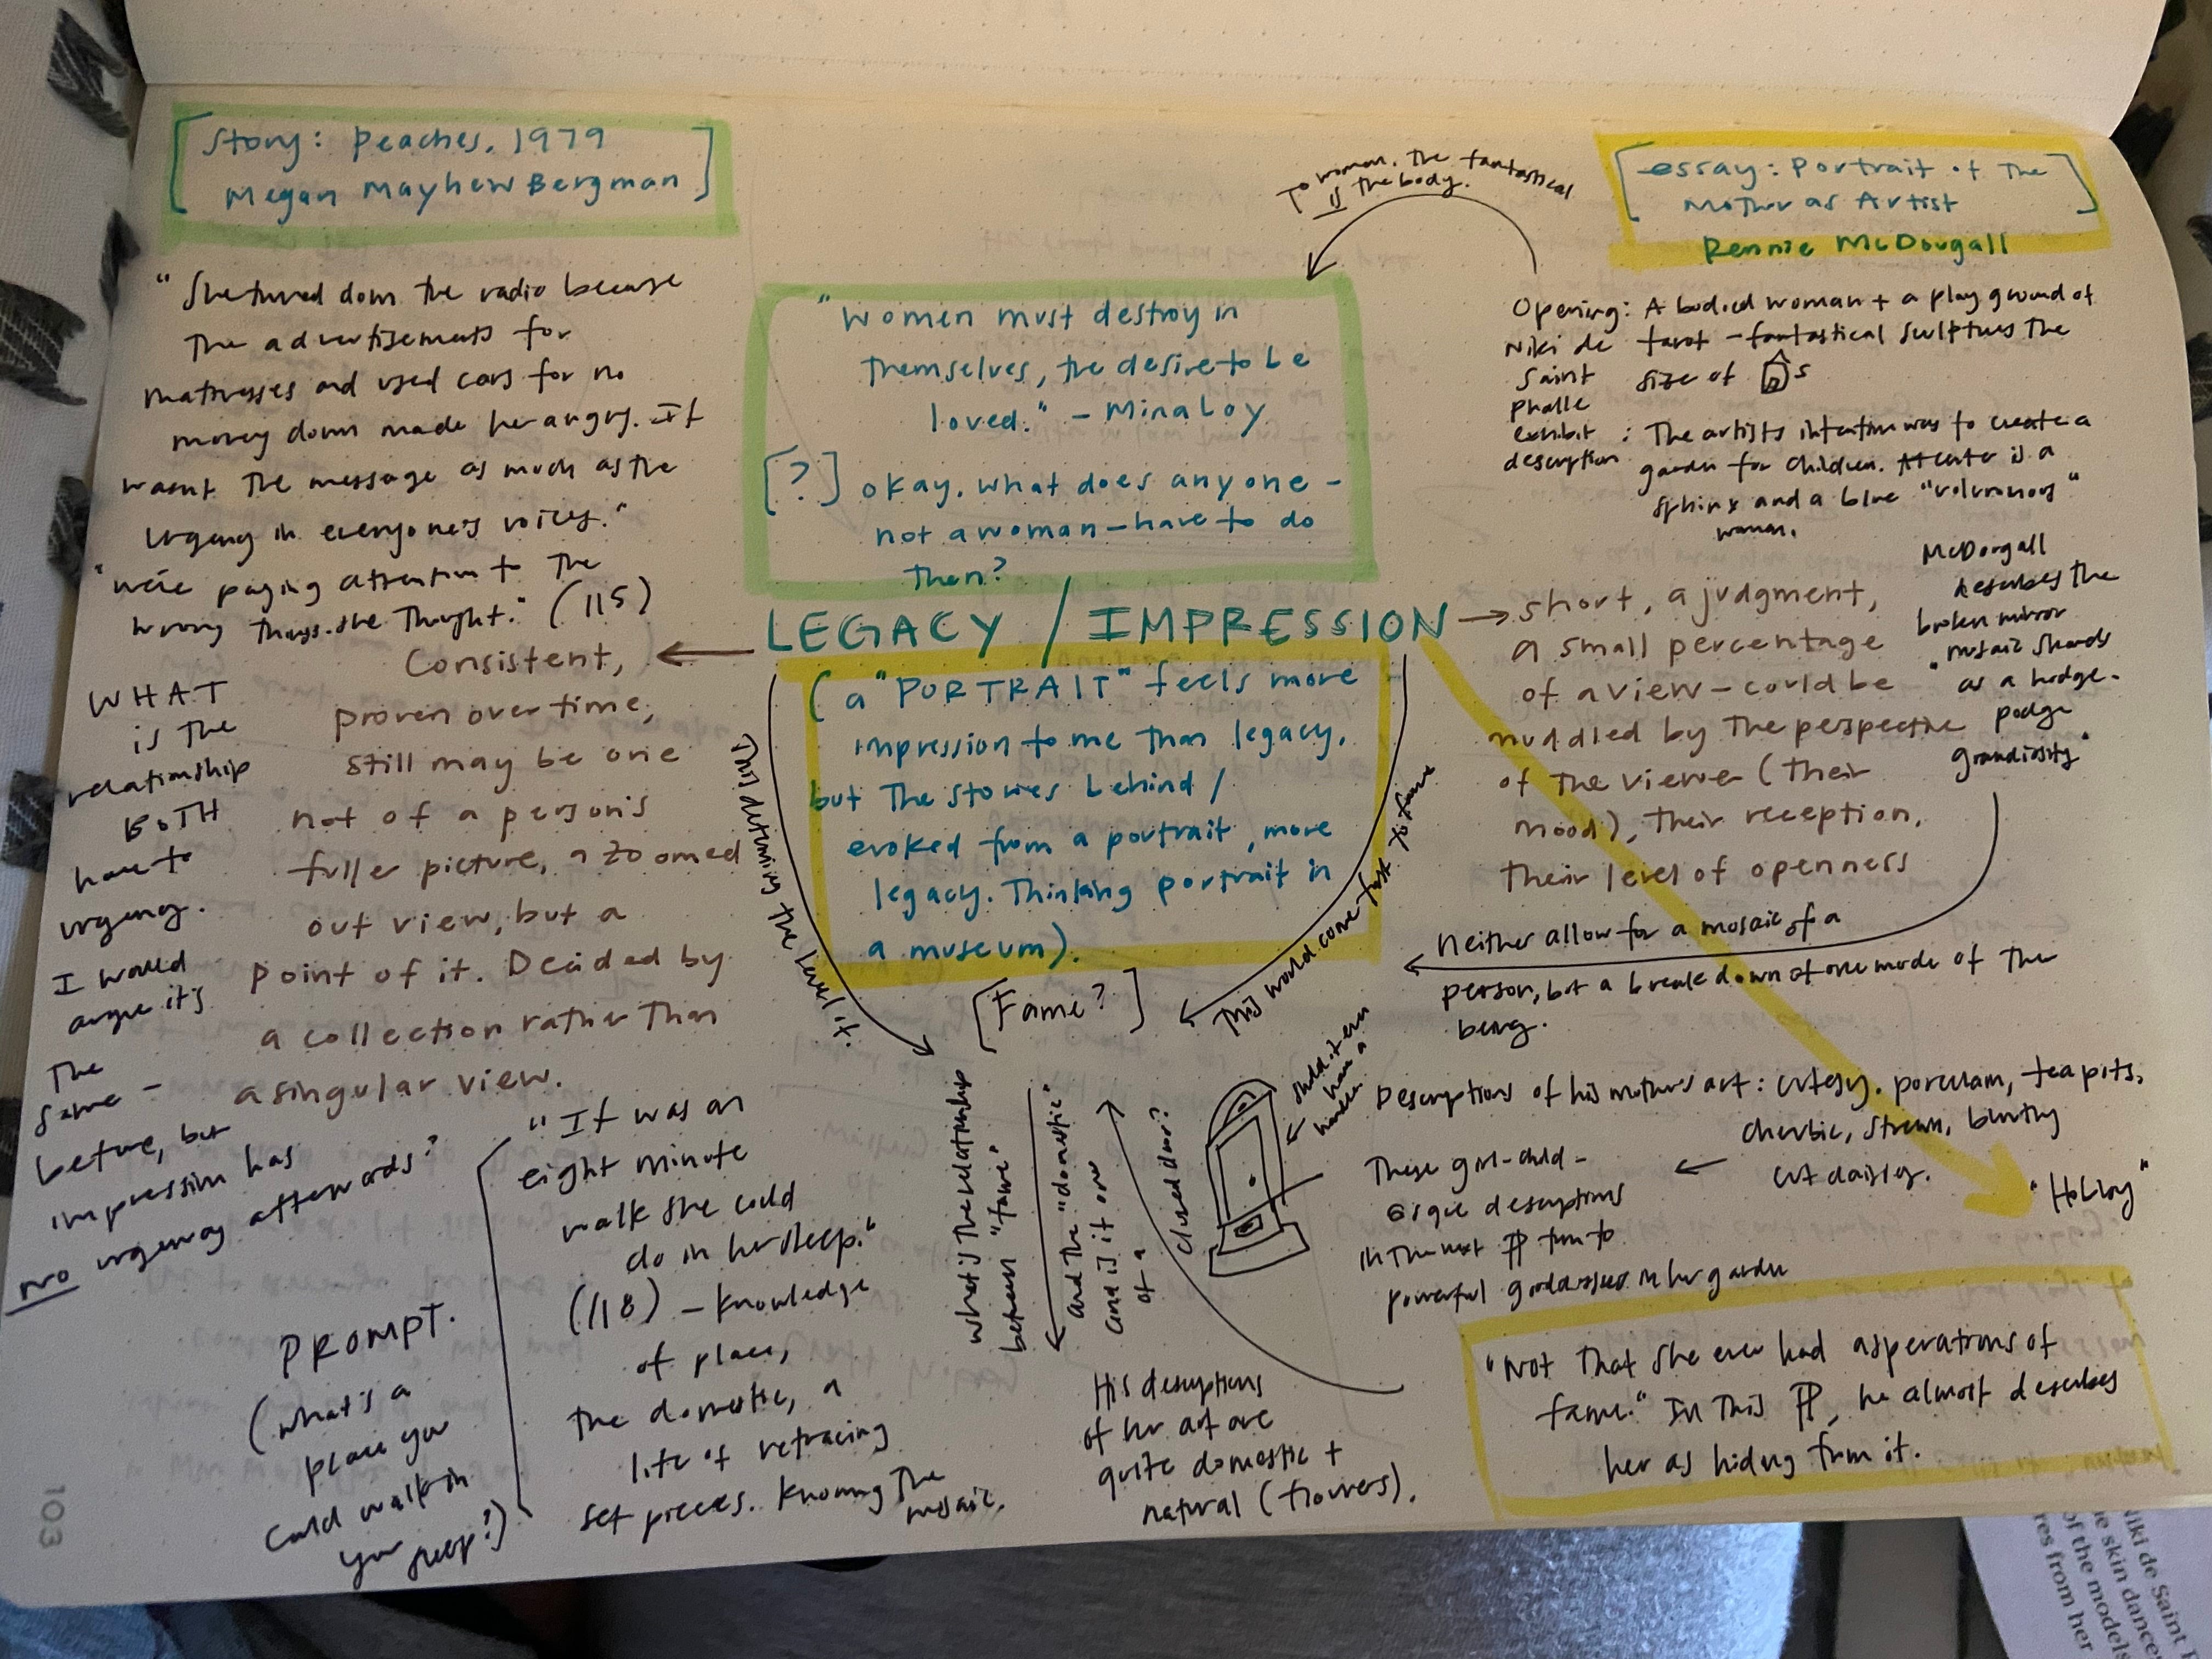 [story: Peaches, 1979
Megan Mayhew Bergman]
"She turned down the radio because
the advertisements for
mattresses and used cars for no
money down made her angry. It
wasn't the message as much as the
urgency in everyone's voices."
"We're paying attention to the
wrong things. She thought." (115)
WHAT
is the
relationship
BOTH
have to
urgency.
I would
argue it's
the
same –
before, but
impression has
no urgency afterwards?
Consistent,
proven over time,
still may be one
not of a person's
fuller picture, a zoomed
out view, but a
point of it. Decided by
a collection rather than
a singular view.
PROMPT.
(what's a
place you
could walk in
your sleep?)
"It was an
eight minute
walk she could
do in her sleep."
(118) – knowledge
of place,
the domestic, a
life of retracing
set pieces. Knowing the
mosaic.
"Women must destroy in
themselves, the desire to be
loved." – Mina Loy
[?] okay, what does anyone –
not a woman – have to do
then?
LEGACY / IMPRESSION
(a "PORTRAIT" feels more
impression to me than legacy,
but the stories behind /
evoked from a portrait, more
legacy. Thinking portrait in
a museum).
This determining the level of it.
[Fame?]
This would come first to fame
what is the relationship
between "fame"
and the "domestic"
and is it one
of a
closed door?
should it even
have a
handle
His descriptions
of her art are
quite domestic +
natural (flowers).
To woman, the fantastical
is the body.
[essay: Portrait of the
Mother as Artist]
Rennie McDougall
Opening: A bodied woman + a playground of
Niki de tarot – fantastical sculptures the
Saint size of s
Phalle
exhibit : The artists intention was to create a
description garden for children. At center is a
sphinx and a blue "voluminous"
woman.
McDougall
describes the
broken mirror
mosaic shards
"as a hodge-
podge
grandiosity"
short, a judgment,
a small percentage
of a view – could be
muddled by the perspective
of the viewer (their
mood), their reception,
their level of openness
Neither allow for a mosaic of a
person, but a breakdown of one mode of the
being.
Descriptions of his mother's art: cutesy, porcelain, teapots,
cherubic, strewn,
cut daisies.
"Hobby"
These girl-child-
esque descriptions
in the next ¶ turn to
powerful goddesses in her garden
"Not that she ever had asperations of
fame." In this ¶, he almost describes
her as hiding from it.
103
Niki de Saint
skin dance
of the models
res from her